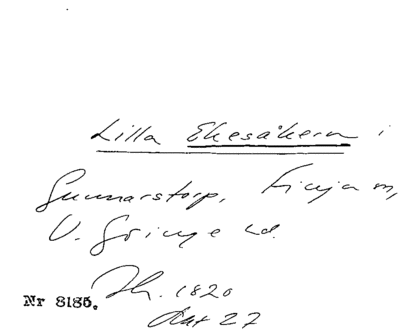 Lilla Ekesåkern i
Gunnarstorp, Finja sn,
V. Göinge hd.
Nr 8185. Sk. 1820
Akt 27